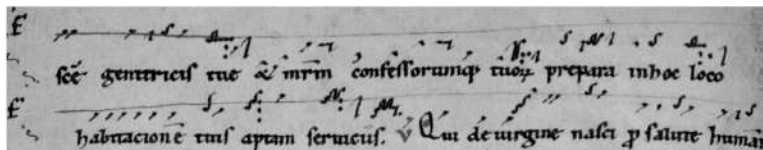 scē genitricis tue & mr̄m confessorumq; tuoꝝ prepara in hoc loco
habitacionē tuis aptam seruiciis. V Qui de uirgine nasci ꝓ salute human